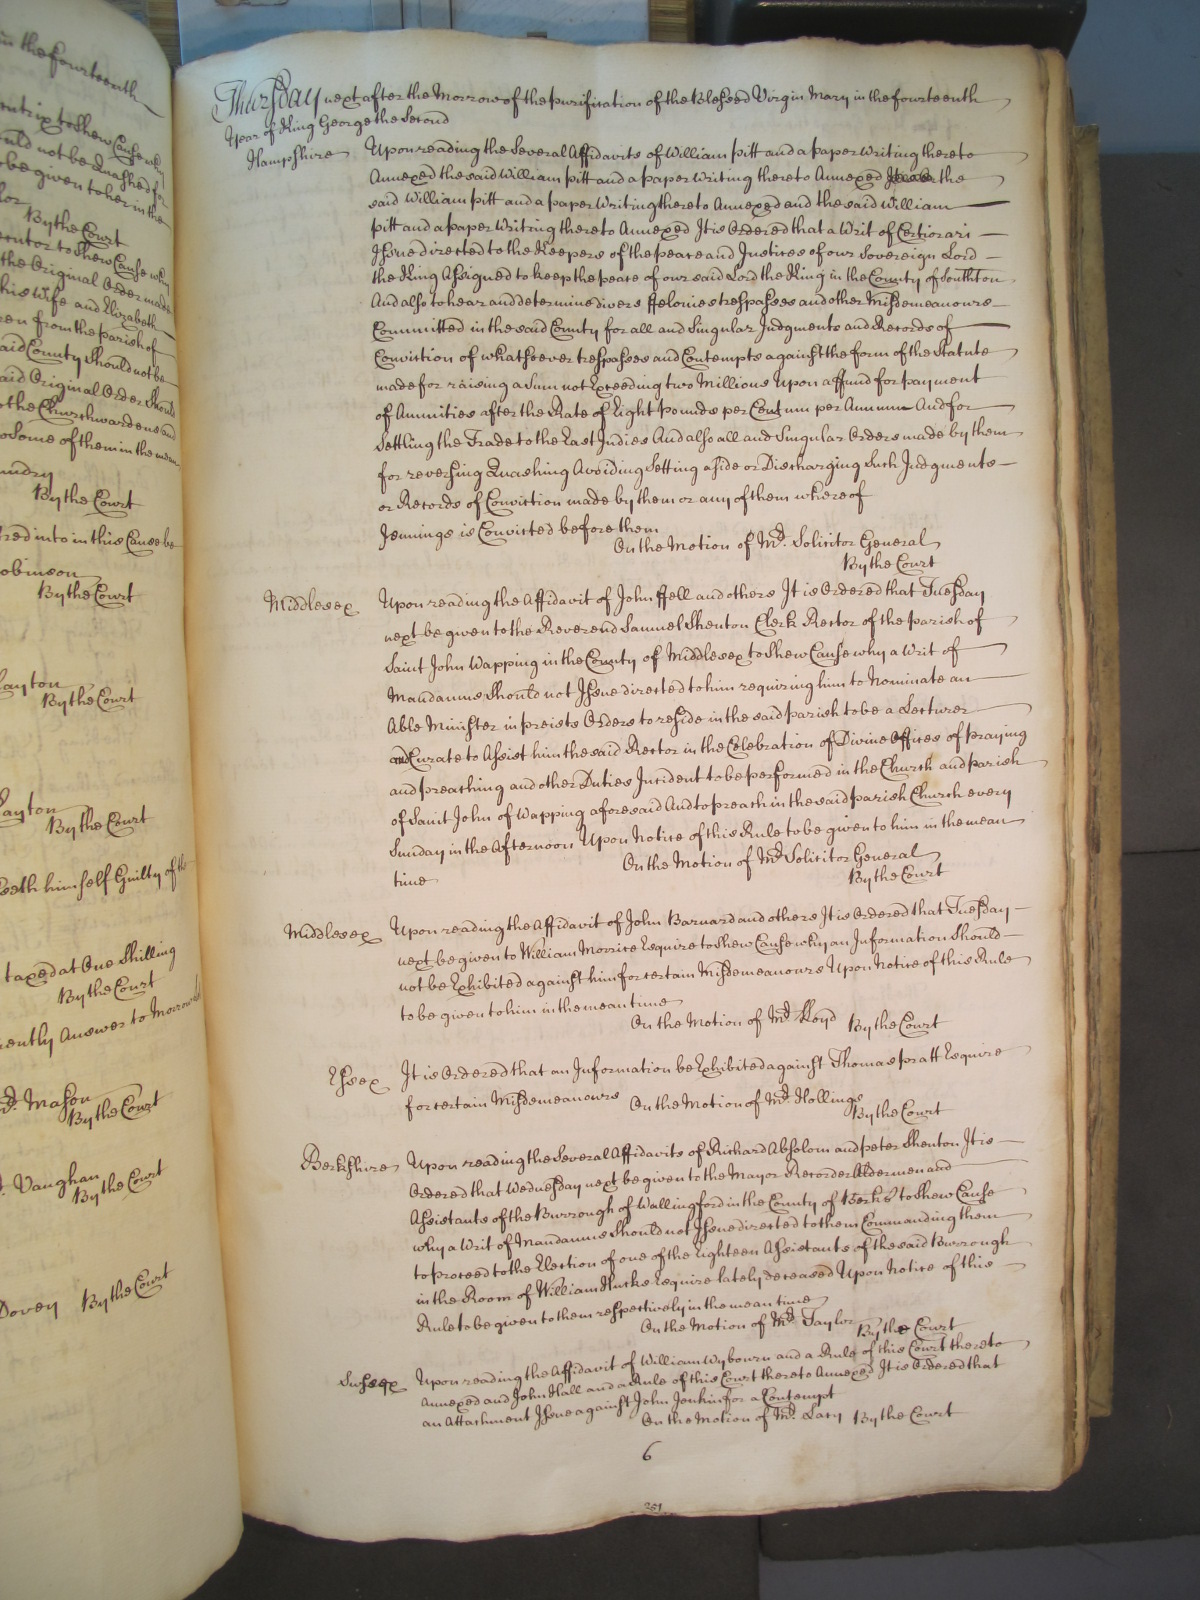 in the fourteenth
entrix to Shew Cause why
ould not be Quashed for
be given to her in the
By the Court
entor to Shew Cause why
the Original Order made
his Wife and Elizabeth
en from the parish of
aid County Should not be
aid Original Order Should
the Churchwardens and
Some of them in the mean
undry
By the Court
red into in this Cause be
obinson
By the Court
ayton
By the Court
ayton
By the Court
eeth himself Guilty of the
taxed at One Shilling
By the Court
ently Answer to Morrow
Mr. Mason
By the Court
Vaughan
By the Court
Dovey By the Court
Thursday next after the Morrow of the purification of the Blessed Virgin Mary in the fourteenth
Year of King George the Second
Hampshire Upon reading the Several Affidavits of William Pitt and a paper Writing thereto
Annexed the said William Pitt and a paper Writing thereto Annexed the
said William Pitt and a paper Writing thereto Annexed and the said William
Pitt and a paper Writing thereto Annexed It is Ordered that a Writ of Certiorari
Issue directed to the Keepers of the peace and Justices of our Sovereign Lord
the King Assigned to keep the peace of our said Lord the King in the County of Southton
And also to hear and determine divers ffelonies trespasses and other Misdemeanours
Committed in the said County for all and Singular Judgments and Records of
Conviction of whatsoever trespasses and Contempts against the form of the Statute
made for raising a Sum not Exceeding two Millions Upon a ffund for payment
of Annuities after the Rate of Eight pounds per Centum per Annum And for
Settling the Trade to the East Indies And also all and Singular Orders made by them
for reversing Quashing Avoiding Setting aside or Discharging Such Judgments
or Records of Conviction made by them or any of them whereof
Jennings is Convicted before them
On the Motion of Mr. Solicitor General
By the Court
Middlesex Upon reading the Affidavit of John ffell and others It is Ordered that Tuesday
next be given to the Reverend Samuel Shenton Clerk Rector of the parish of
Saint John Wapping in the County of Middlesex to Shew Cause why a Writ of
Mandamus Should not Issue directed to him requiring him to Nominate an
Able Minister in preists Orders to reside in the said parish to be a Lecturer
and Curate to Assist him the said Rector in the Celebration of Divine Offices of praying
and preaching and other Duties Incident to be performed in the Church and parish
of Saint John of Wapping aforesaid And to preach in the said parish Church every
Sunday in the Afternoon Upon Notice of this Rule to be given to him in the mean
time On the Motion of Mr. Solicitor General
By the Court
Middlesex Upon reading the Affidavit of John Barnard and others It is Ordered that Tuesday
next be given to William Morrice Esquire to Shew Cause why an Information Should
not be Exhibited against him for certain Misdemeanours Upon Notice of this Rule
to be given to him in the mean time
On the Motion of Mr. Lloyd By the Court
Essex It is Ordered that an Information be Exhibited against Thomas Pratt Esquire
for certain Misdemeanours On the Motion of Mr. Hollings
By the Court
Berkshire Upon reading the Several Affidavits of Richard Absolom and Peter Shenton It is
Ordered that Wednesday next be given to the Mayor Recorder Aldermen and
Assistants of the Burrough of Wallingford in the County of Berks to Shew Cause
why a Writ of Mandamus Should not Issue directed to them Commanding them
to proceed to the Election of one of the Eighteen Assistants of the said Burrough
in the Room of William Hucks Esquire lately deceased Upon Notice of this
Rule to be given to them respectively in the mean time
On the Motion of Mr. Taylor By the Court
Sussex Upon reading the Affidavit of William Wybourn and a Rule of this Court thereto
Annexed and John Hall and a Rule of this Court thereto Annexed It is Ordered that
an Attachment Issue against John Jenkin for a Contempt
On the Motion of Mr. Lacy By the Court
6
251